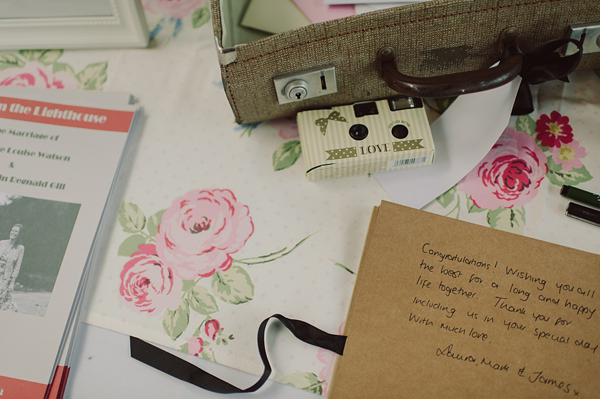 n the Lighthouse
he Marriage of
e Louise Watson
&
in Reginald Gill
LOVE
Congratulations! Wishing you all
the best for a long and happy
life together. Thank you for
including us in your special day
With much love.
Laura, Mark & James x